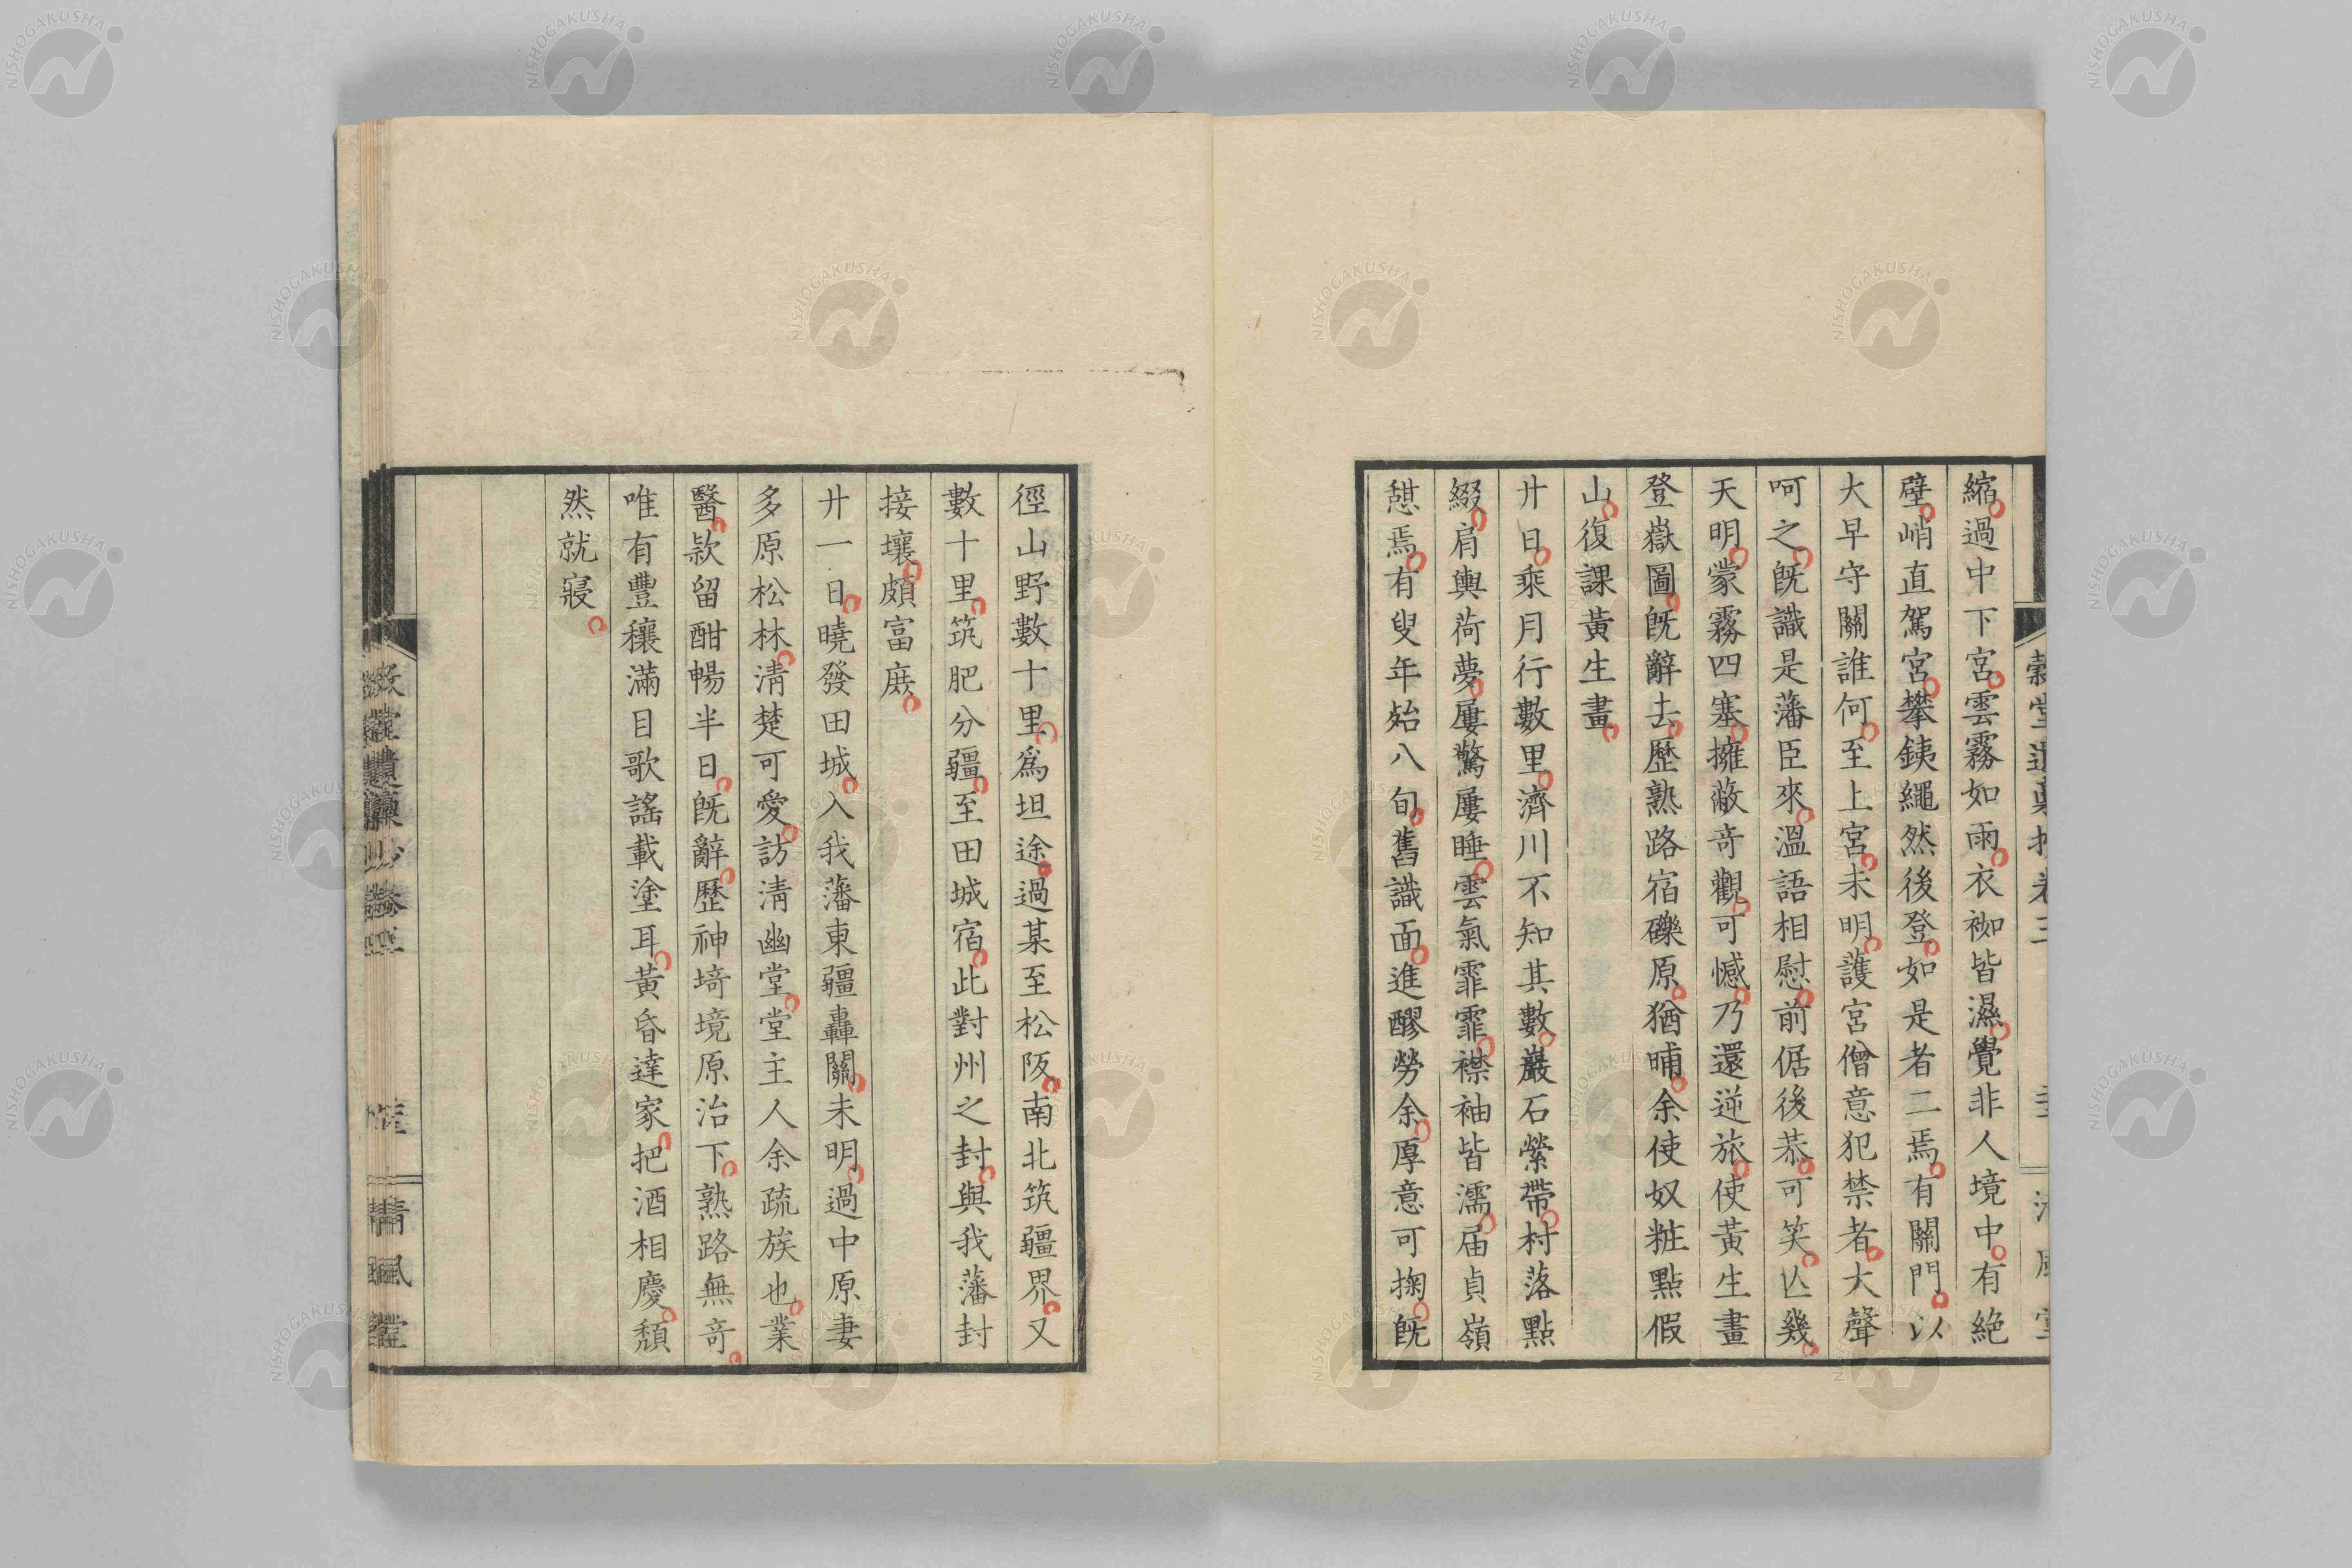 縮過中下宮雲霧如雨衣袽皆濕覺非人境中有絶
壁峭直駕宮攀銕繩然後登如是者二焉有關門以
大早守關誰何至上宮未明護宮僧意犯禁者大聲
呵之旣識是藩臣來溫語相慰前倨後恭可笑亾幾
天明蒙霧四塞擁蔽竒觀可憾乃還逆旅使黃生畫
登嶽圖旣辭去歷熟路宿礫原猶晡余使奴粧點假
山復課黃生畫
廿日乘月行數里濟川不知其數巖石縈帶村落點
綴肩輿荷夢屢驚屢睡雲氣霏霏襟袖皆濡届貞嶺
憇焉有叟年始八旬舊識面進醪勞余厚意可掬旣
徑山野數十里爲坦途過某至松阪南北筑疆界又
數十里筑肥分疆至田城宿此對州之封與我藩封
接壤頗富庶
廿一日曉發田城入我藩東疆轟關未明過中原妻
多原松林淸楚可愛訪淸幽堂堂主人余疏族也業
醫款留酣暢半日旣辭歷神埼境原治下熟路無竒
唯有豐穰滿目歌謠載塗耳黃昏達家把酒相慶頹
然就寢
淸風堂
NISHOGAKUSHA